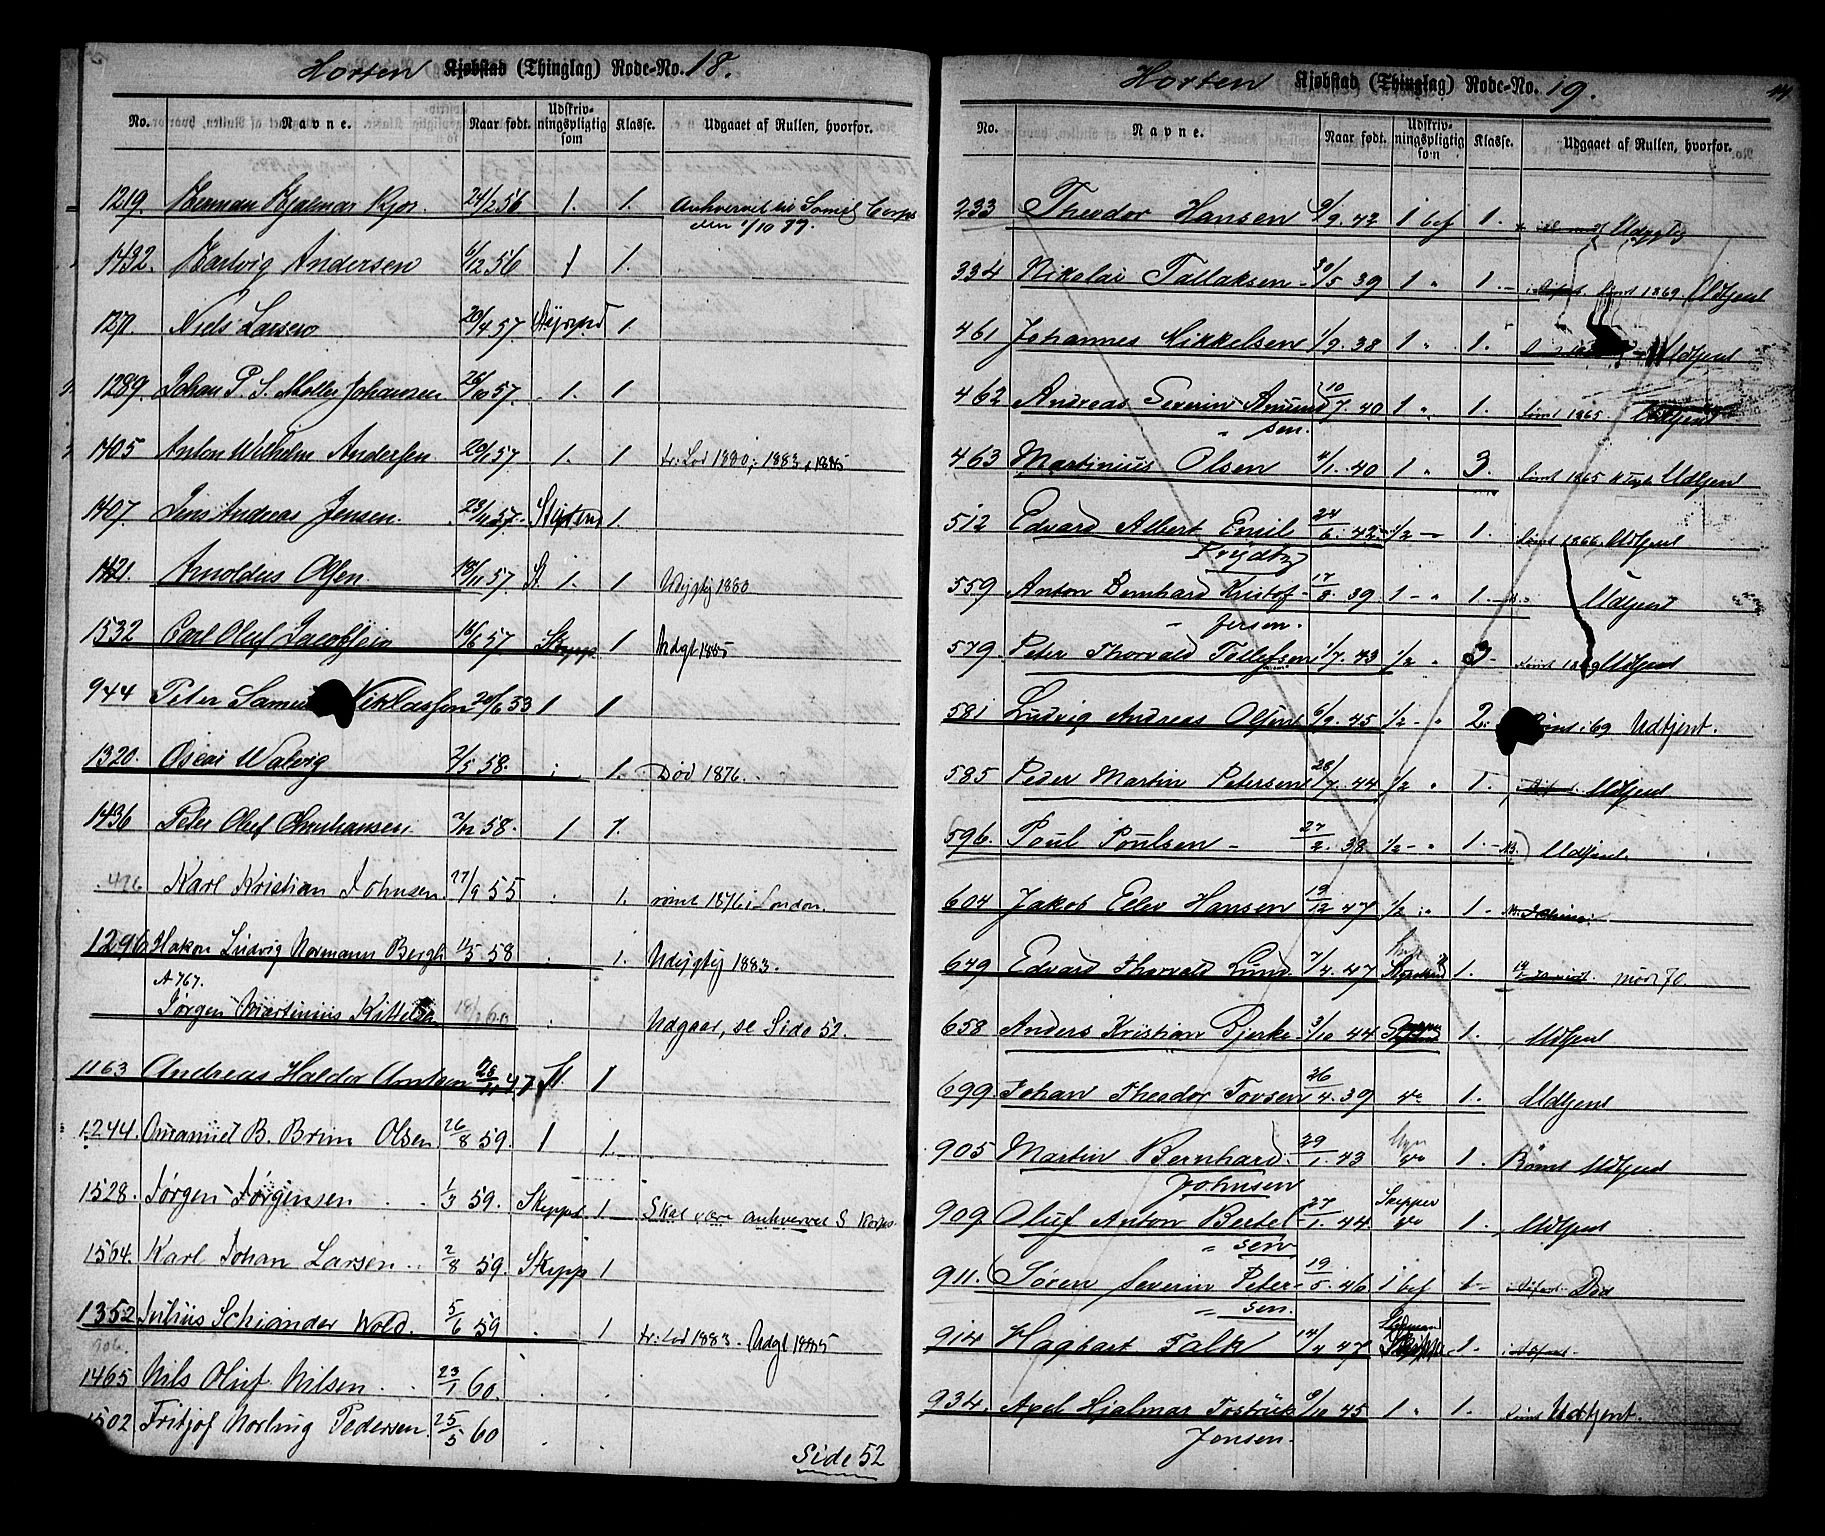 Horten Kjøbstad (Thinglag) Rode-No. 18.
No. Navne. Naar født. Udskriv-ningspligtig som Klasse. Udgaaet af Rullen, hvorfor.
1219. Herman Hjalmar Kjær. 24/2 56 1. 1. Anhvervet til Somil Corps
den 1/10 77.
1432. Hartvig Andersen 6/12 56 1 1.
1271. Niels Larsen 20/4 57 1.
1289. Johan P. S. Møller Johansen 26/10 57. 1. 1
1405 Anton Wilhelm Andersen 29/1 57 1. 1 fr: Lod 1880; 1883, 1885
1407 Jens Andreas Jensen. 23/11 57. 1.
1421. Arnoldus Olsen. 18/11 57. St 1. 1 Udygtig 1880
1532 Carl Oluf Jacobsen 16/6 57. Skipps 1 Udgt 1885
944 Peter Samuel Niklassen 20/6 53 1 1
1320. Oscar Walvig 2/5 58. 1. Død 1876.
1436 Peter Oluf 58. 1 1.
476 Karl Kristian Johnsen. 27/9 55 1. rømt 1876 i London.
1296 Hakon Ludvig Normann Bergh 11/5 58 1. Udygtig 1883.
A 767.
Jørgen Martinius Kittelsen 60 Udgaar, se Side 52.
1163 Andreas Haldor Arntsen 47 St. 1
1244. Emanuel B. Brun Olsen 26/8 59. 1 1.
1528. Jørgen Jørgensen 1/3 59. Skipps 1 Skal være anhvervet S Korps.
1564. Karl Johan Larsen 2/8 59. Skipp 1
1352 Julius Schiander Wold. 5/6 59 1 fr: Lod 1883. Udgt 1885
906.
1465 Nils Oluf Nilsen 23/1 60.
1502 Fritjof Norling Pedersen. 25/5 60
Side 52
Horten Kjøbstad (Thinglag) Rode-No. 19.
No. Navne. Naar født. Udskriv-ningspligtig som Klasse. Udgaaet af Rullen, hvorfor.
233 Theodor Hansen 9/9. 42 1 bef 1. Udygtig
334 Nikolai Tallaksen 30/5 39 1 " 1. rømt 1869. Udtjent
461 Johannes Mikkelsen 1/9. 38 1 " 1. Udtjent
462 Andreas Severin Amund 10/7. 40 1 " 1. rømt 1865 Udtjent
" sen.
463 Martinius Olsen 4/1. 40 1 " 3. rømt 1865 Udtjent
512 Edvard Albert Emil 24/6. 42 1/2 1. rømt 1866, Udtjent
Freydtz
559. Anton Bernhard Kristof 17/8. 39. 1 " 1. Udtjent
" fersen.
579. Peter Thorvald Tollefsen 1/7. 43 1/2 " 3 rømt 1869 Udtjent
581 Ludvig Andreas Olsen 6/9. 45 1/2 " 2. rømt. 69 Udtjent.
585 Peder Martin Petersen 28/7. 44 1/2 " 1. Udtjent
596. Poul Poulsen 27/2. 38 1/2 " 1. Udtjent.
604 Jakob Edev Hansen 19/12 47 1/2 1
649 Edvard Thorvald Lund. 7/4. 47 1. mød 70
658 Anders Kristian Bjerke 3/10 44 1. Udtjent
699. Johan Theodor Torsen 26/4. 39 do 1. Udtjent
905 Martin Bernhard. 29/1. 43 do 1. Rømt Udtjent
Johnsen
909. Oluf Anton Bertel 27/1. 44 Skipper do 1. Udtjent
" sen
911. Søren Severin Peter 19/5. 46 1 bef 1 Død
" sen.
914 Hagbart Falk 14/4 47 1.
934. Axel Hjalmar 9/10 45 1 " 1. rømt Udtjent.
Jonsen.